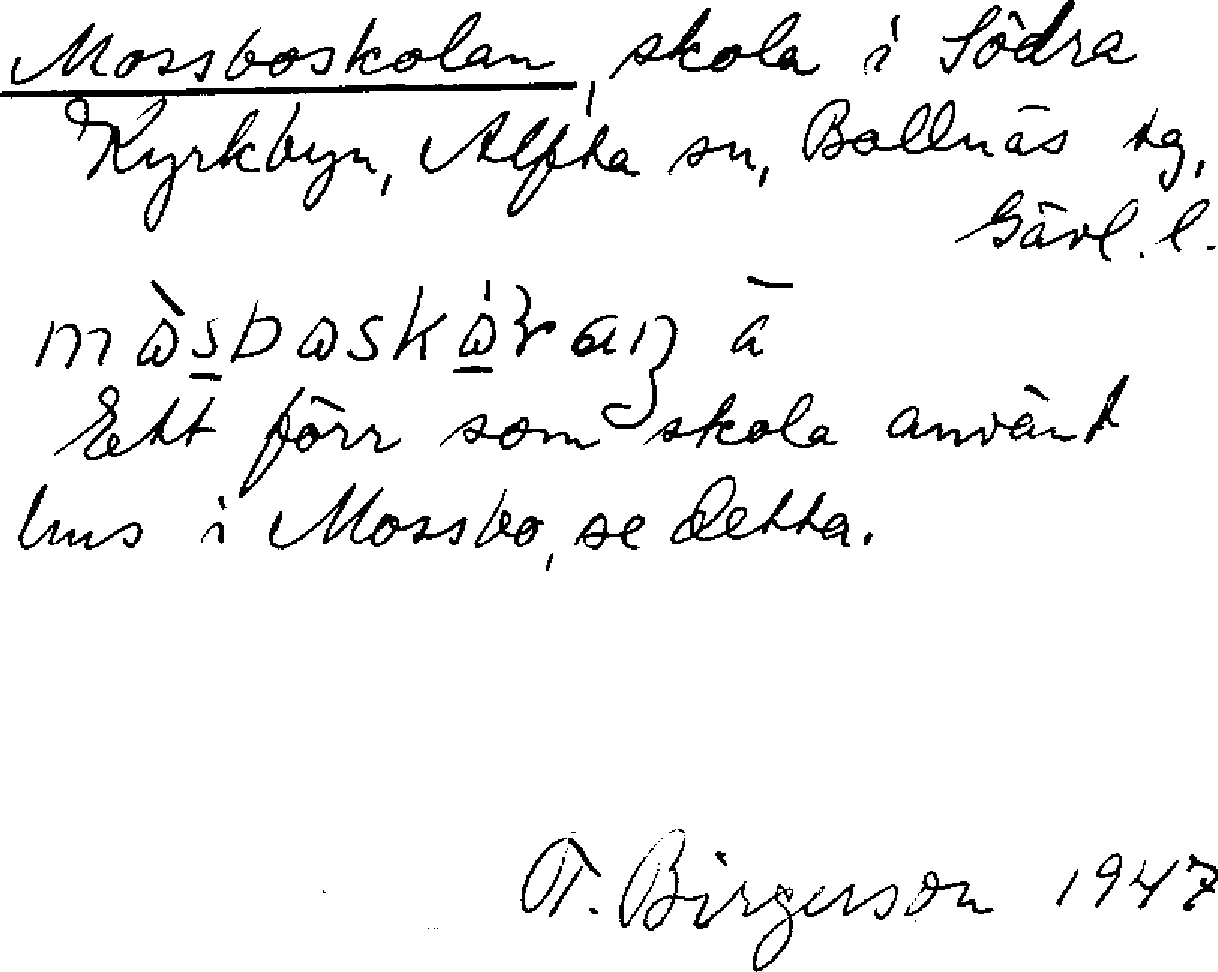 Mossboskolan, skola i Södra
Kyrkbyn, Alfta sn, Bollnäs tg,
Gävl. l.
Ett förr som skola använt
hus i Mossbo, se detta.
T. Birgerson 1947